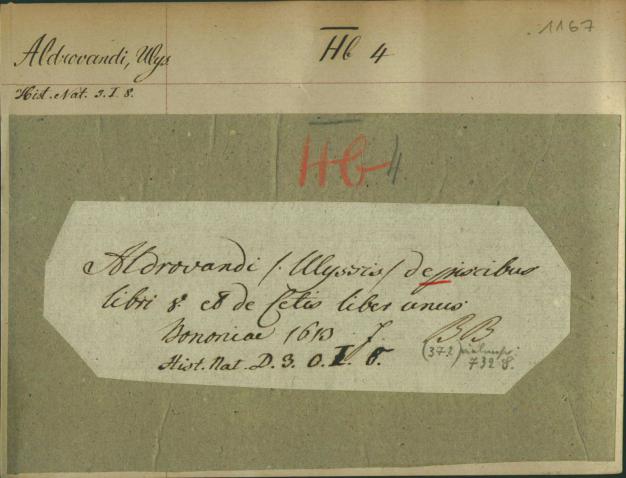 1167
Aldrovandi, Ulys
Hb 4
Hist. Nat. 3. I. 8.
Hb 4
Aldrovandi /: Ulyssis / de piscibus
libri 8. et de Cetis liber unus
Bononiae 1613 f. BB
(372)
Hist. Nat. D. 3. O. I. 8. 732 S.